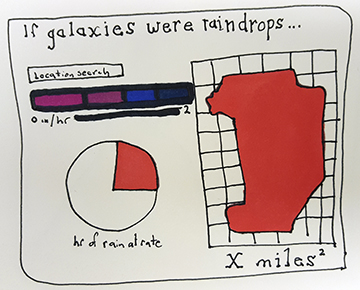 If galaxies were raindrops...
Location search
0 in/hr 2
hr of rain at rate
X miles²